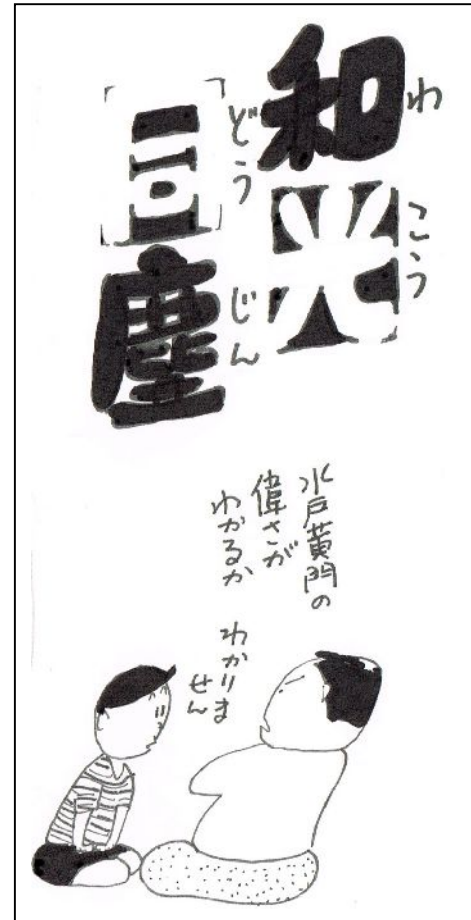 和光
わこう
同塵
どうじん
水戸黄門の
偉さが
わかるか
わかりま
せん